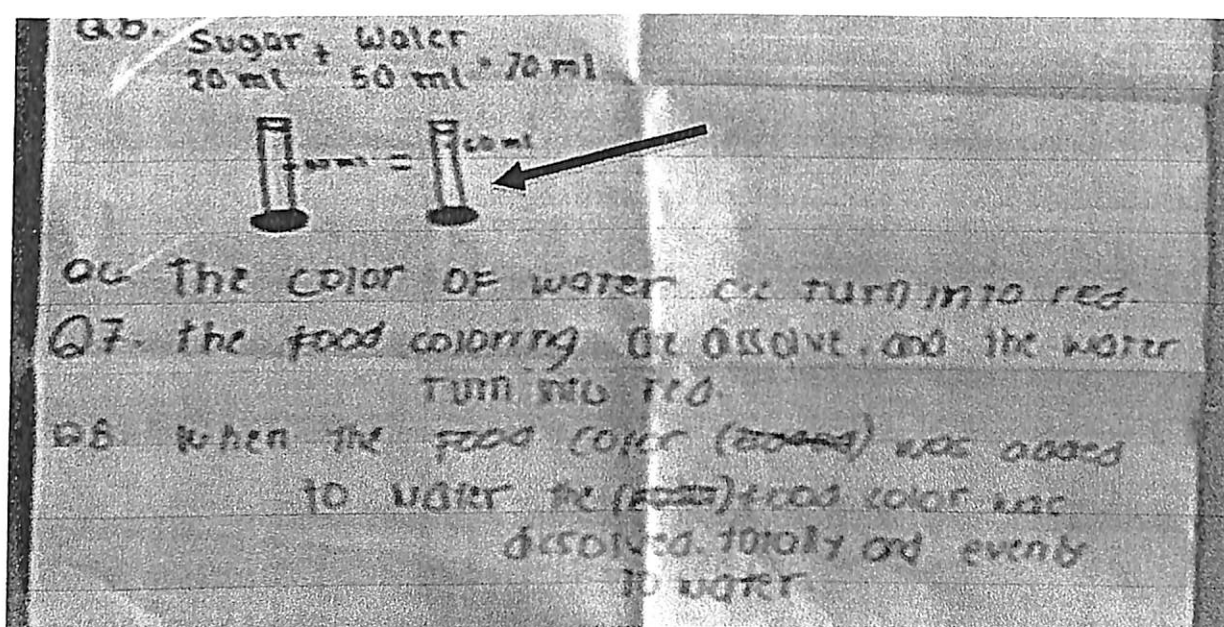 Sugar + Water
20 ml 50 ml = 70 ml
= 60 ml
Q6 The color of water turn into red.
Q7. the food coloring dissolve, and the water
turn into red.
Q8 When the food color () was added
to water the () food color was
dissolved. totally and evenly
to water